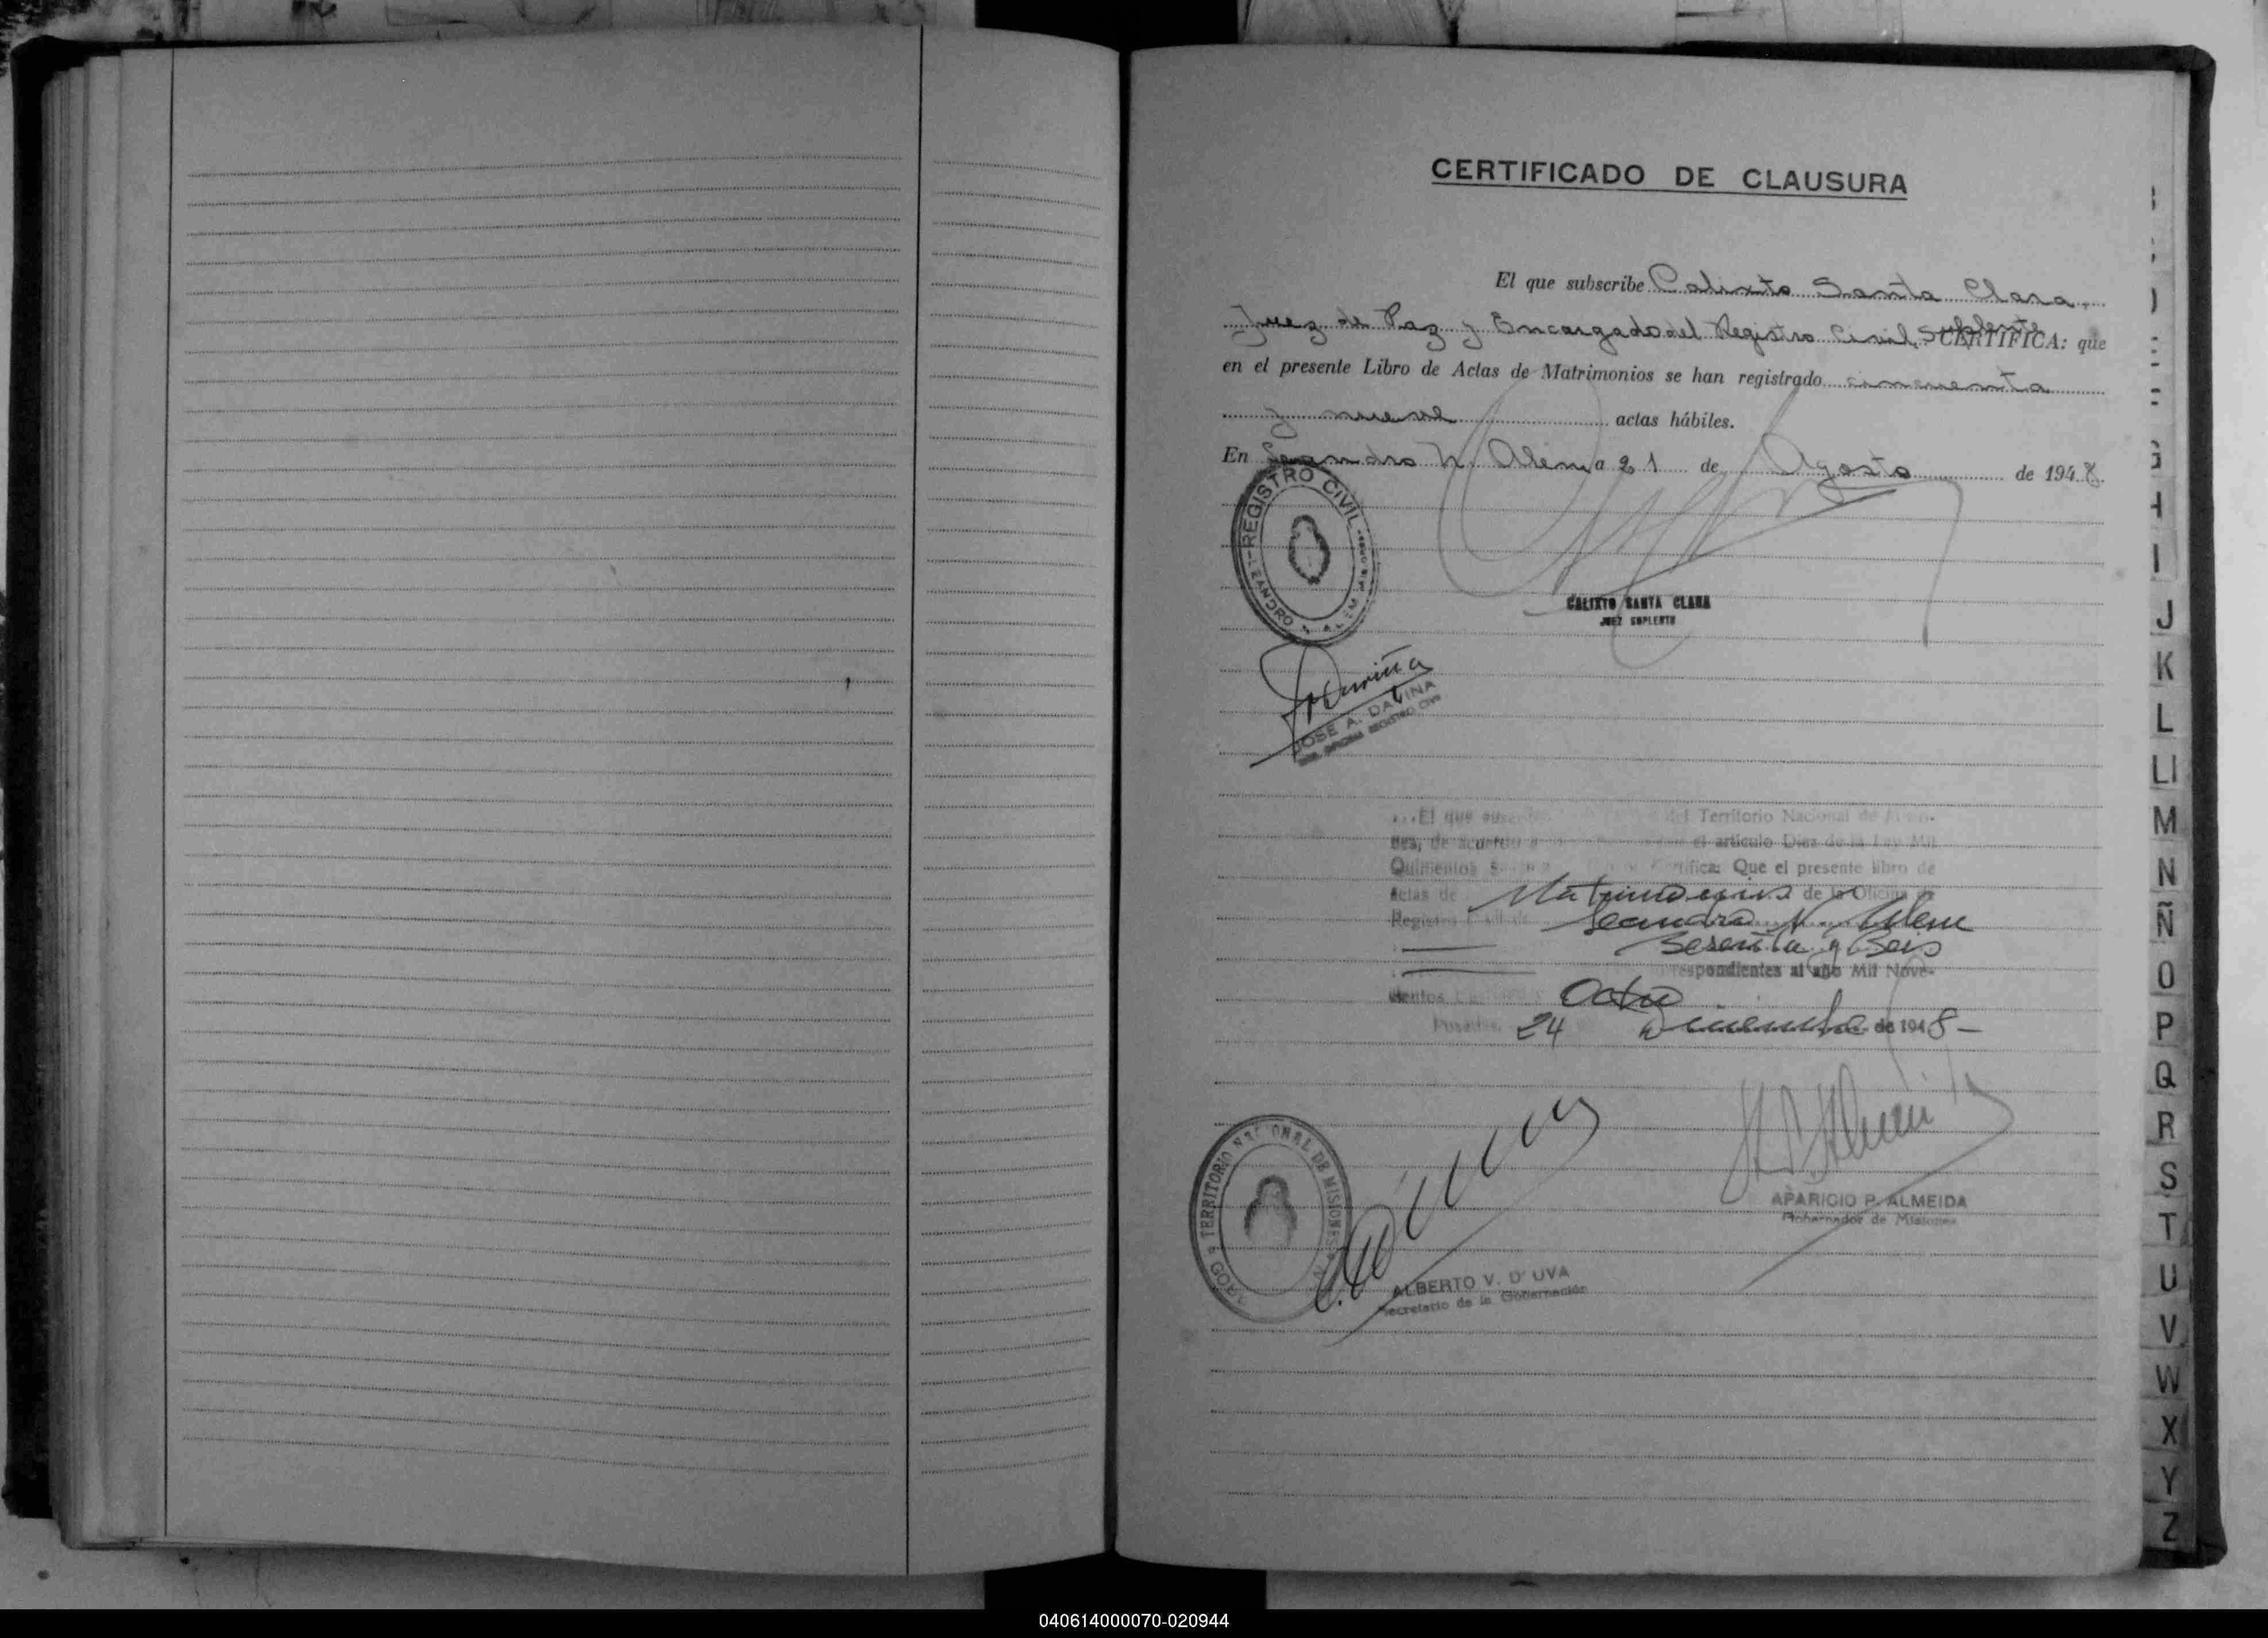 CERTIFICADO DE CLAUSURA
El que subscribe Calixto Santa Clara,
Juez de Paz y Encargado del Registro Civil, Suplente CERTIFICA: que
en el presente Libro de Actas de Matrimonios se han registrado cincuenta
y nueve actas hábiles.
En Leandro N. Alem a 21 de Agosto de 1948
REGISTRO CIVIL
LEANDRO N. ALEM
CALIXTO SANTA CLARA
JUEZ SUPLENTE
JOSE A. DAVIÑA
REGISTRO CIVIL
...El que del Territorio Nacional de
des, de acuerdo el artículo Diez de la Ley Mil
Quinientos Certifica: Que el presente libro de
actas de Matrimonios de la Oficina de
Registro Leandro N. Alem
Sesenta y Seis
respondientes al año Mil Nove-
cientos Ocho
Posadas, 24 Diciembre de 1948-
GOB. TERRITORIO NACIONAL DE MISIONES
APARICIO P. ALMEIDA
Gobernador de Misiones
ALBERTO V. D'UVA
Secretario de la Gobernación
G
H
I
J
K
L
Ll
M
N
Ñ
O
P
Q
R
S
T
U
V
W
X
Y
Z
040614000070-020944